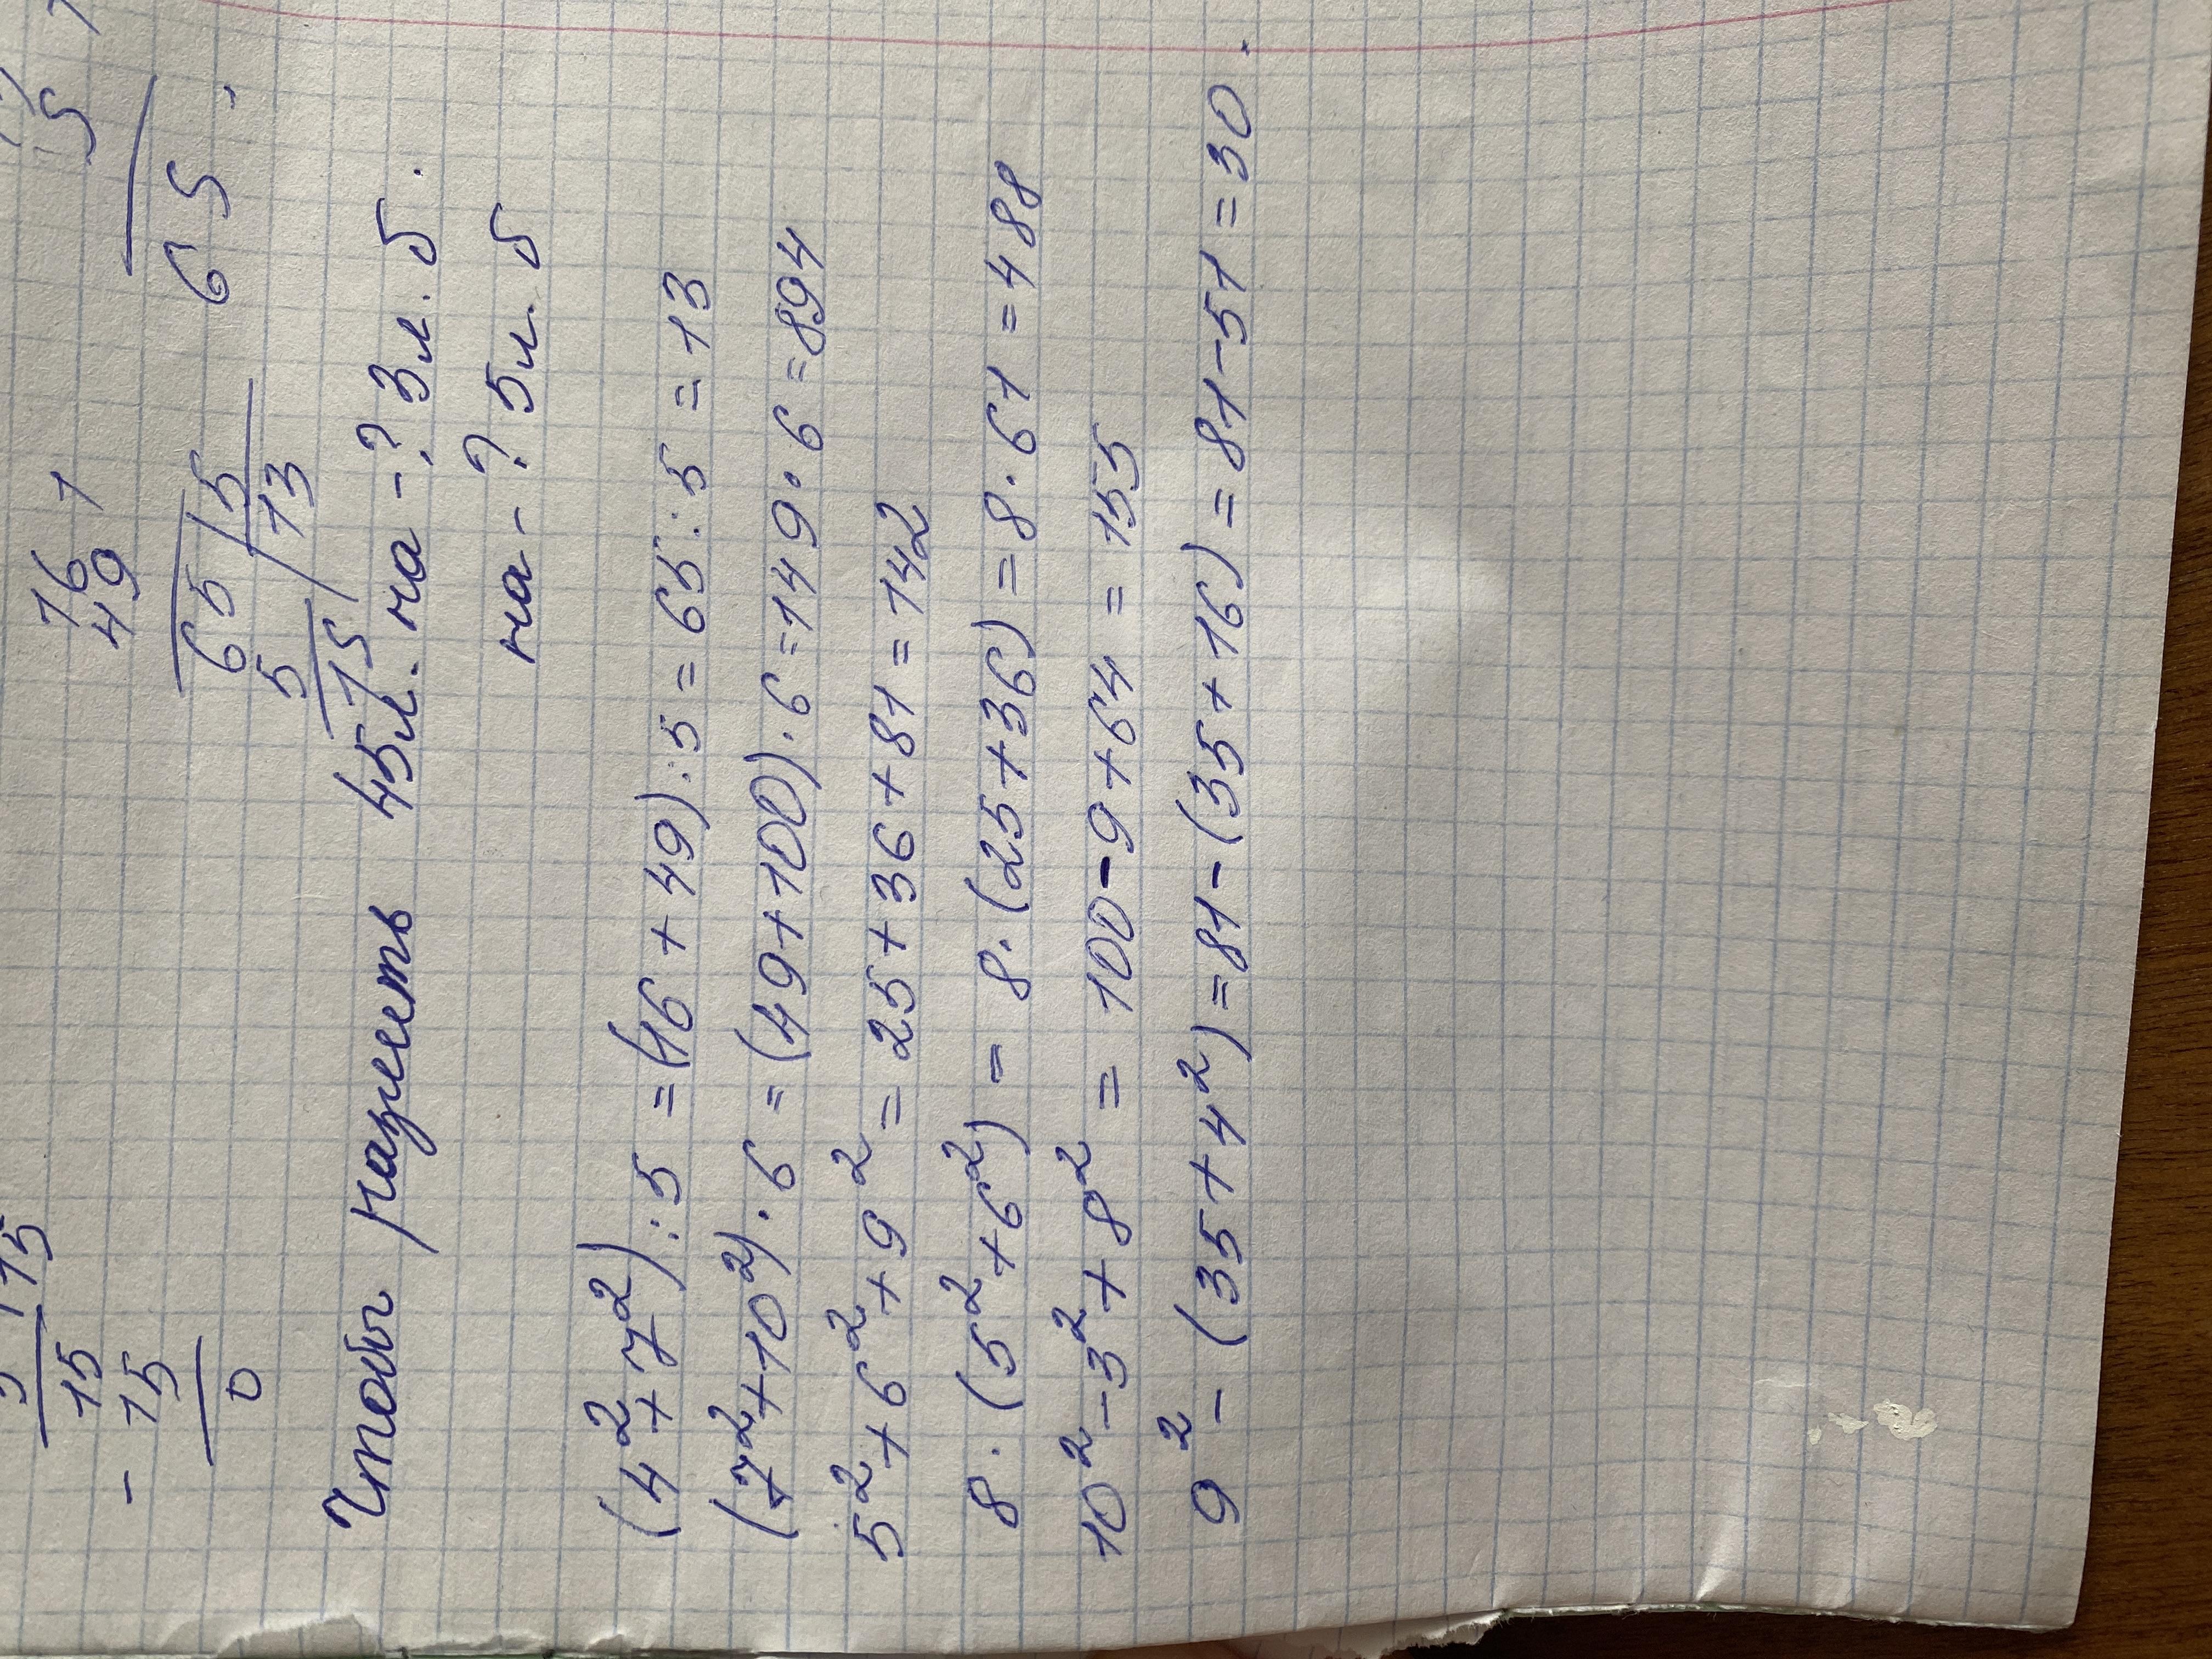 5 15
15
- 15
0
1
16
49
65
5
65 5
5 13
15
65
Чтобы разлить 45л. на -? 3л. б.
на -? 5л. б
(4²+7²):5 =(16+49):5 = 65:5 = 13
(7²+10²)·6 =(49+100)·6=149·6=894
5²+6²+9² = 25+36+81=142
8·(5²+6²) = 8·(25+36)=8·61=488
10²-3²+8² = 100-9+64 = 155
9²-(35+4²)=81-(35+16)=81-51=30.